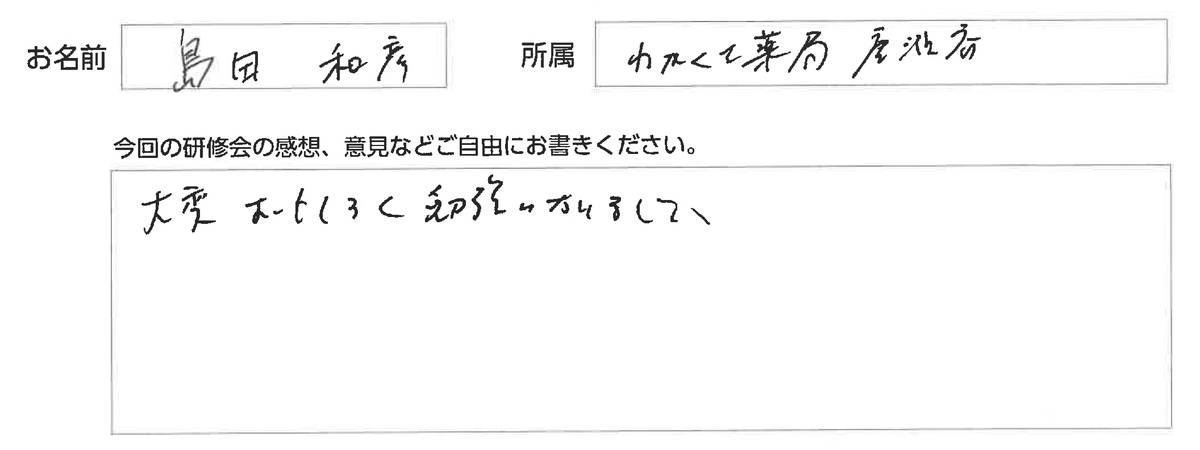 お名前 島田 和彦 所属 わかくて薬局 店
今回の研修会の感想、意見などご自由にお書きください。
大変 おもしろく 勉強になりまして、